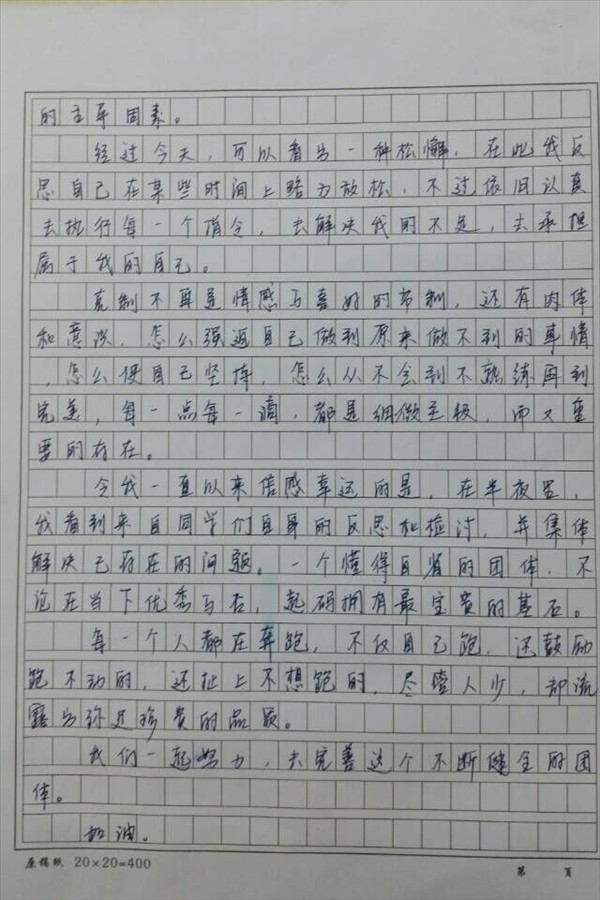 的主导因素。
经过今天，可以看出一种松懈，在此我反
思自己在某些时间上略为放松，不过依旧认真
去执行每一个指令，去解决我的不足，去承担
属于我的自己。
克制不再是情感与喜好的节制，还有肉体
和意识，怎么强迫自己做到原来做不到的事情
，怎么使自己坚持，怎么从不会到不熟练再到
完美，每一点每一滴，都是细微至极，而又重
要的存在。
令我一直以来倍感幸运的是，在半夜里，
我看到来自同学们自身的反思和检讨，并集体
解决已存在的问题。一个懂得自省的团体，不
论在当下优秀与否，起码拥有最宝贵的基石。
每一个人都在奔跑，不仅自己跑，还鼓励
跑不动的，还扯上不想跑的，尽管人少，却流
露出弥足珍贵的品质。
我们一起努力，去完善这个不断健全的团
体。
加油。
原稿纸 20×20=400
第 页